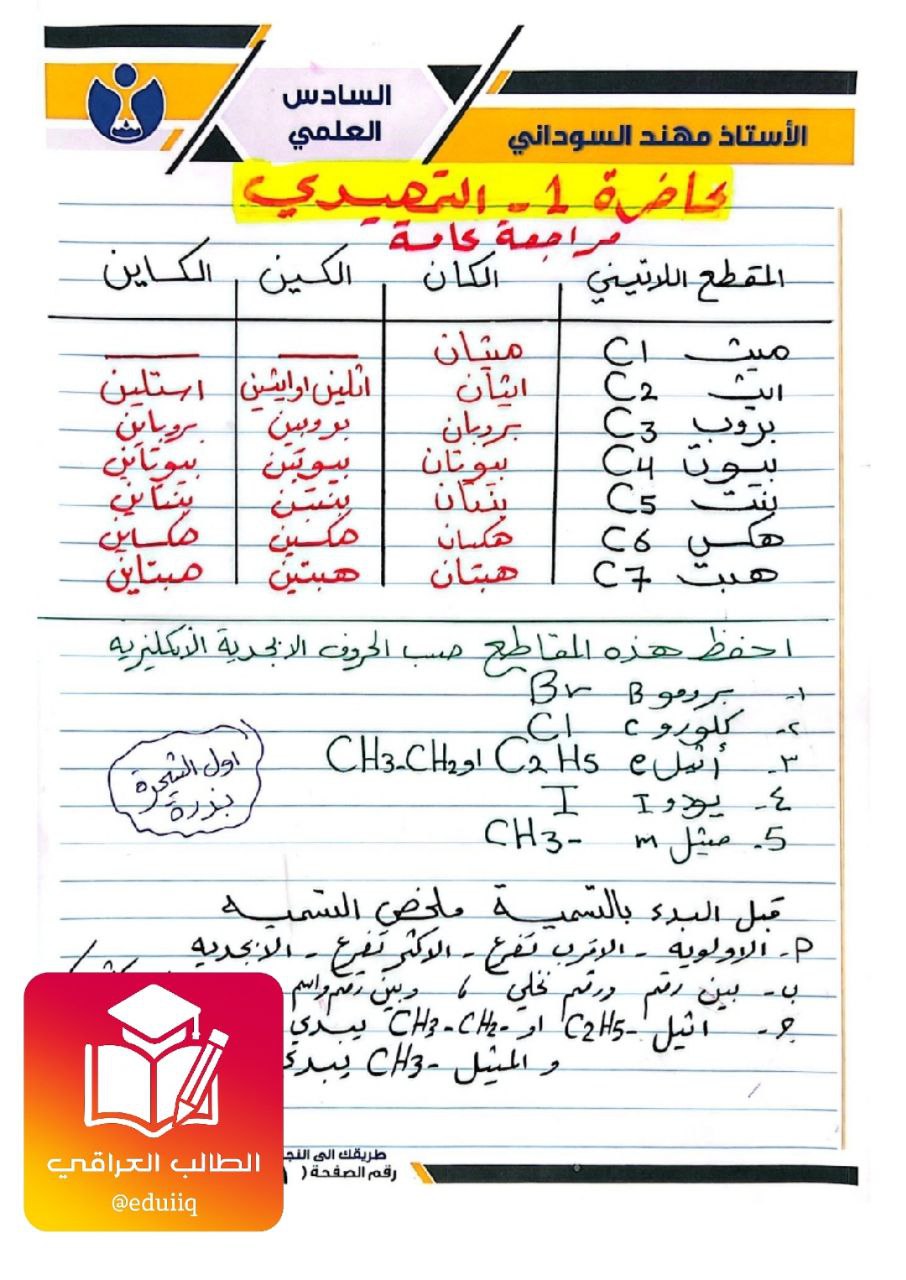 السادس
العلمي
الأستاذ مهند السوداني
محاضرة 1 - التمهيدي
مراجعة عامة
المقطع اللاتيني الكان الكين الكاين
ميث C1 ميثان
ايث C2 ايثان اثلين او ايثين استلين
بروب C3 بروبان بروبين بروباين
بيوت C4 بيوتان بيوتين بيوتاين
بنت C5 بنتان بنتين بنتاين
هكس C6 هكسان هكسين هكساين
هبت C7 هبتان هبتين هبتاين
احفظ هذه المقاطع حسب الحروف الابجدية الانكليزيه
١- برومو B Br
٢- كلورو C Cl
٣- أثيل e C2H5 او CH3-CH2
٤- يودو I I
5- مثيل m CH3-
اول الشجرة
بذرة
قبل البدء بالتسمية ملخص التسميه
P- الاولويه - الاقرب تفرع - الاكثر تفرع - الابجديه
ب- بين رقم ورقم نخلي ، وبين رقم واسم
ج- اثيل C2H5- او CH3-CH2- يبدي
و المثيل CH3- يبدي
طريقك الى النج
رقم الصفحة (
الطالب العراقي
@eduiiq